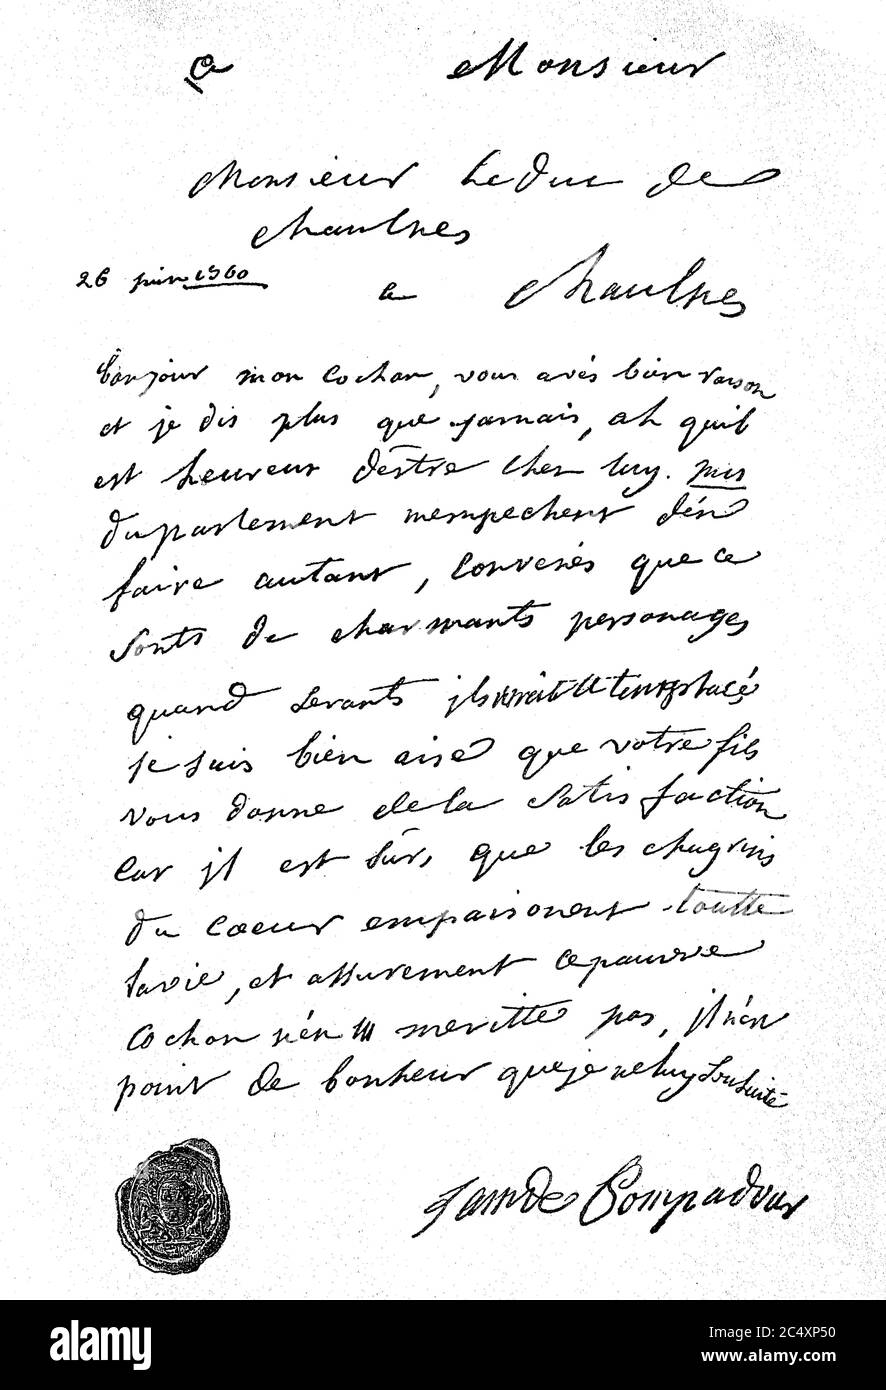 a Monsieur
Monsieur Le duc de
Chaulnes
26 juin 1760
a Chaulnes
bonjour mon cochon, vous avés bien raison
et je dis plus que jamais, ah quil
est heureux déstre chez luy. mrs
du parlement mempechent dén
faire autant, convenés que ce
sonts de charmants personages
quand
je suis bien aise que votre fils
vous donne de la satisfaction
car jl est sûrs que les chagrins
du coeur empoisonent toutte
la vie, et assurement ce pauvre
cochon n'én meritte pas, jl n'én
point de bonheur que je ne luy souhaite
Pompadour
alamy
Image ID: 2C4XP50
www.alamy.com